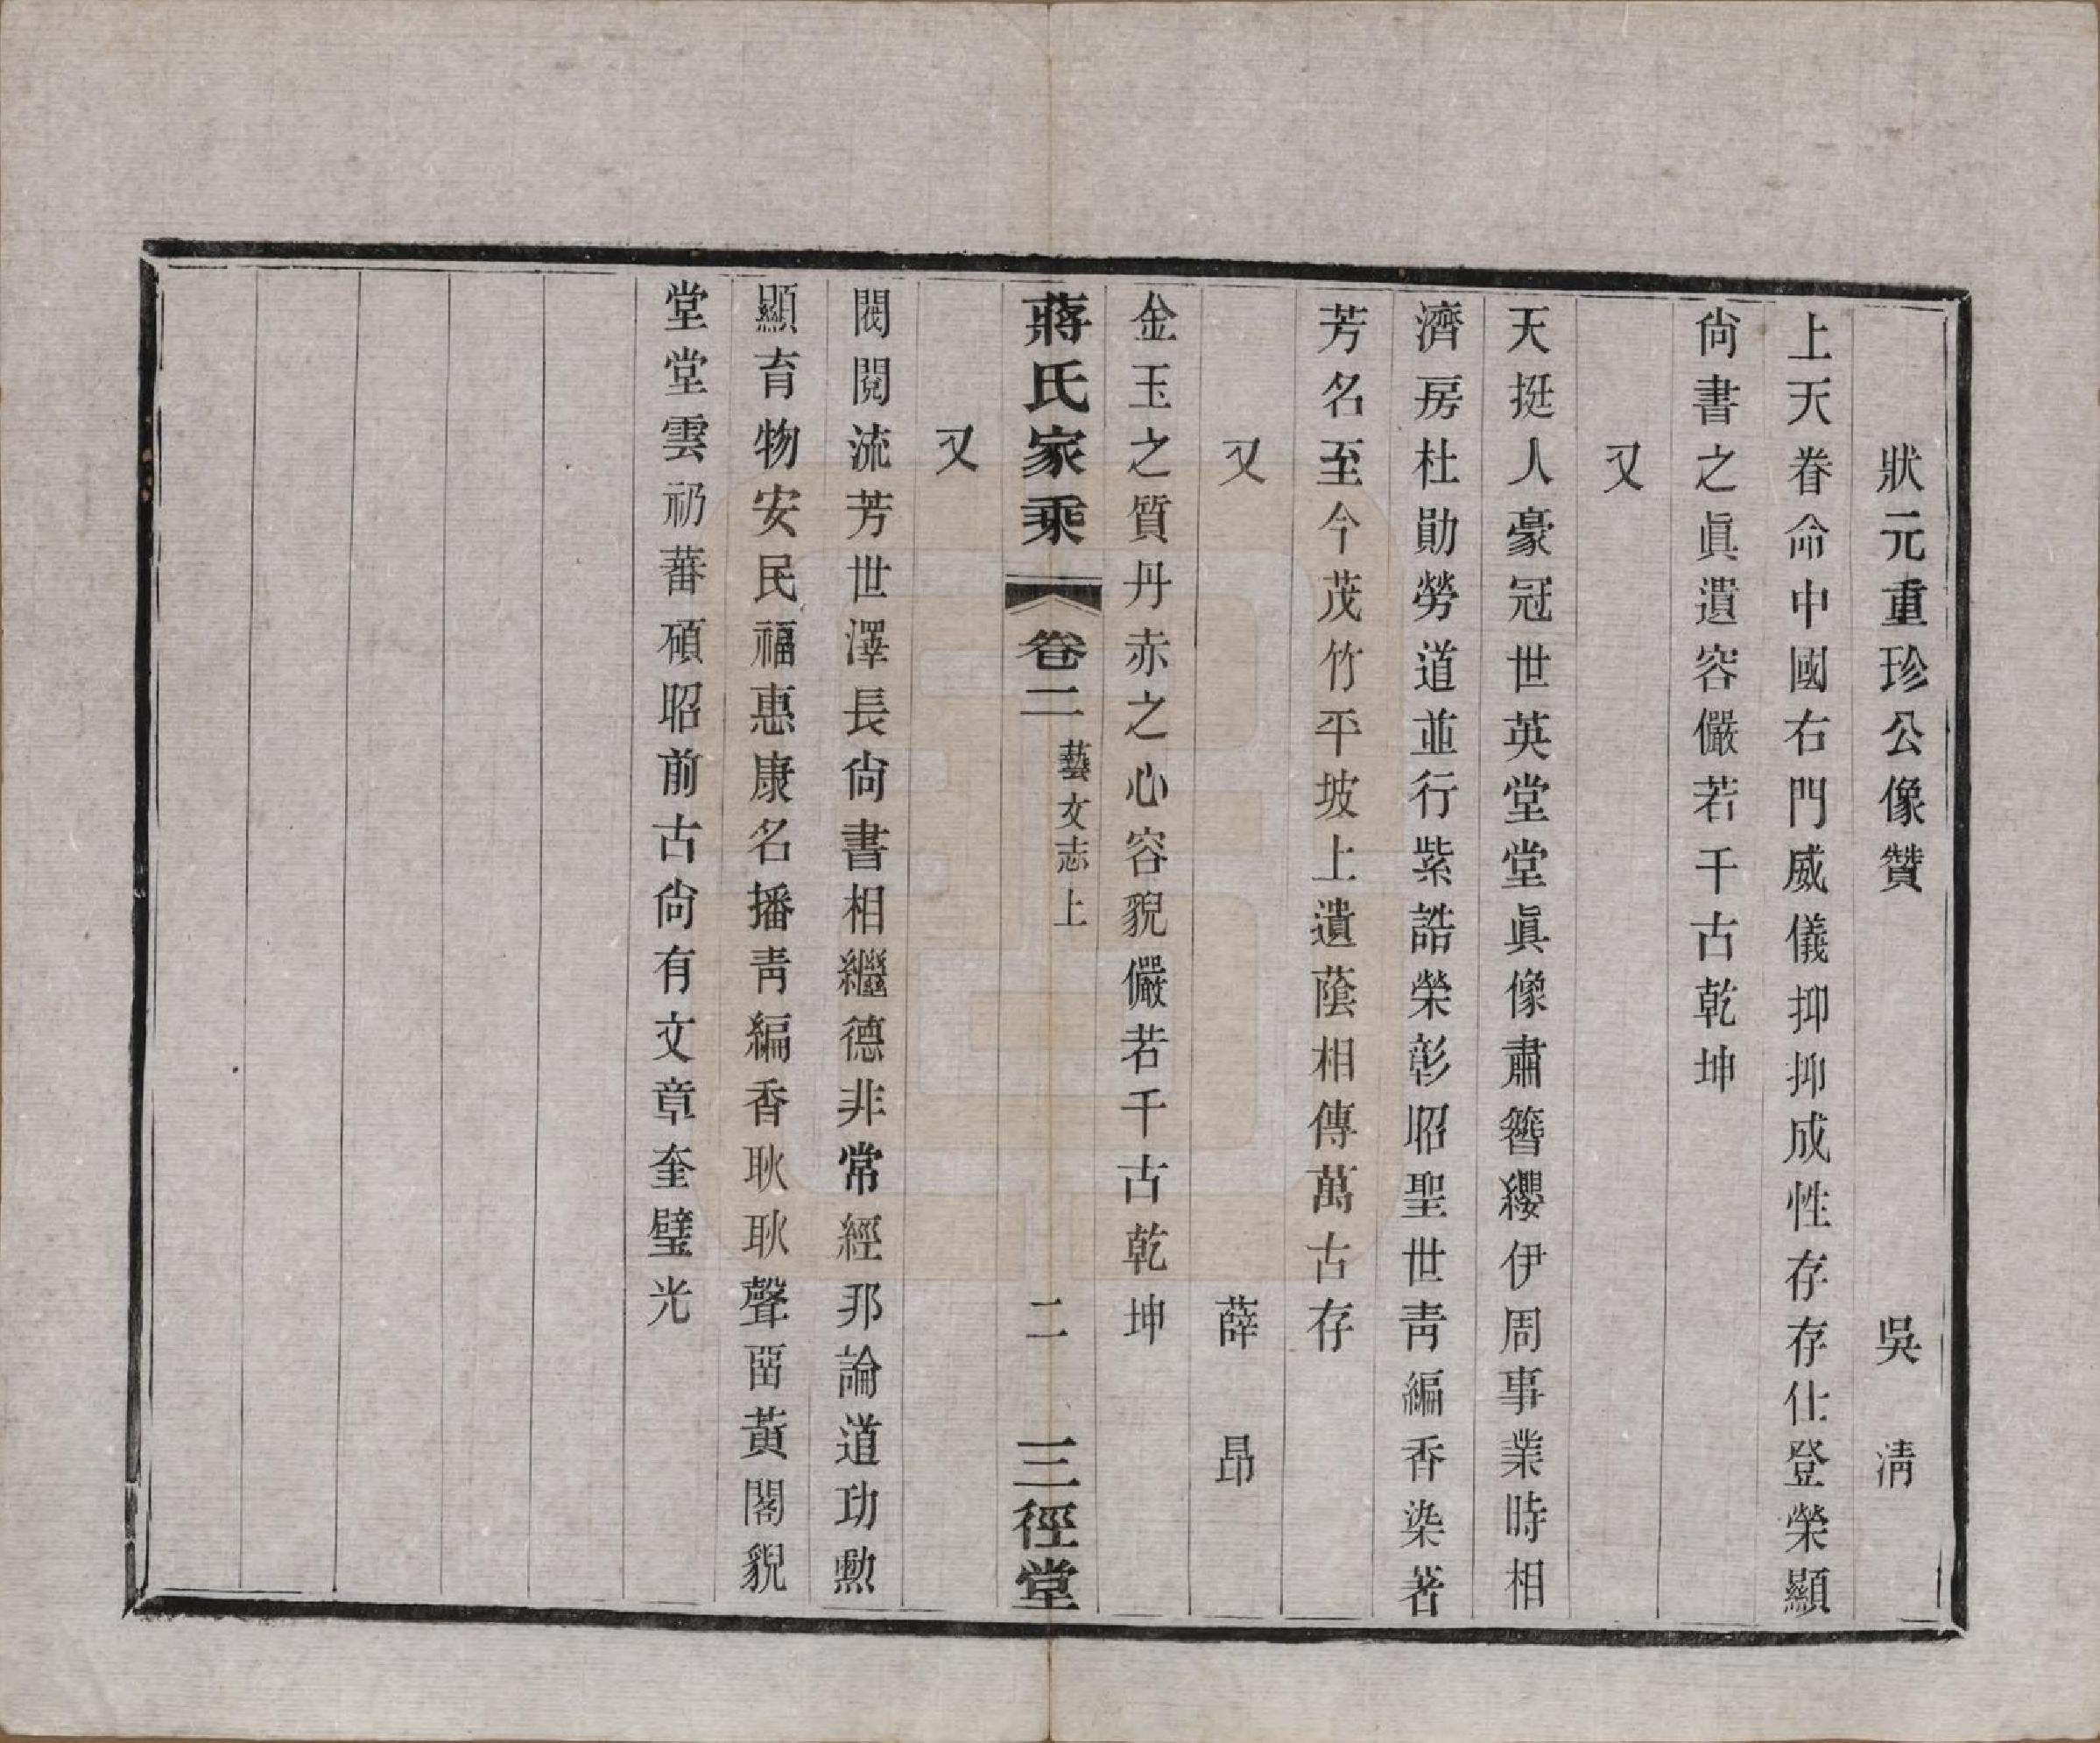 狀元重珍公像贊 吳清
上天眷命中國右門威儀抑抑成性存存仕登榮顯
尙書之眞遺容儼若千古乾坤
又
天挺人豪冠世英堂堂眞像肅簪纓伊周事業時相
濟房杜勛勞道並行紫誥榮彰昭聖世靑編香染著
芳名至今茂竹平坡上遺蔭相傳萬古存
又 薛昂
金玉之質丹赤之心容貌儼若千古乾坤
蔣氏家乘 卷二 藝文志上 二 三徑堂
又
閥閱流芳世澤長尙書相繼德非常經邦論道功勲
顯育物安民福惠康名播靑編香耿耿聲畱黃閣貌
堂堂雲礽蕃碩昭前古尙有文章奎璧光